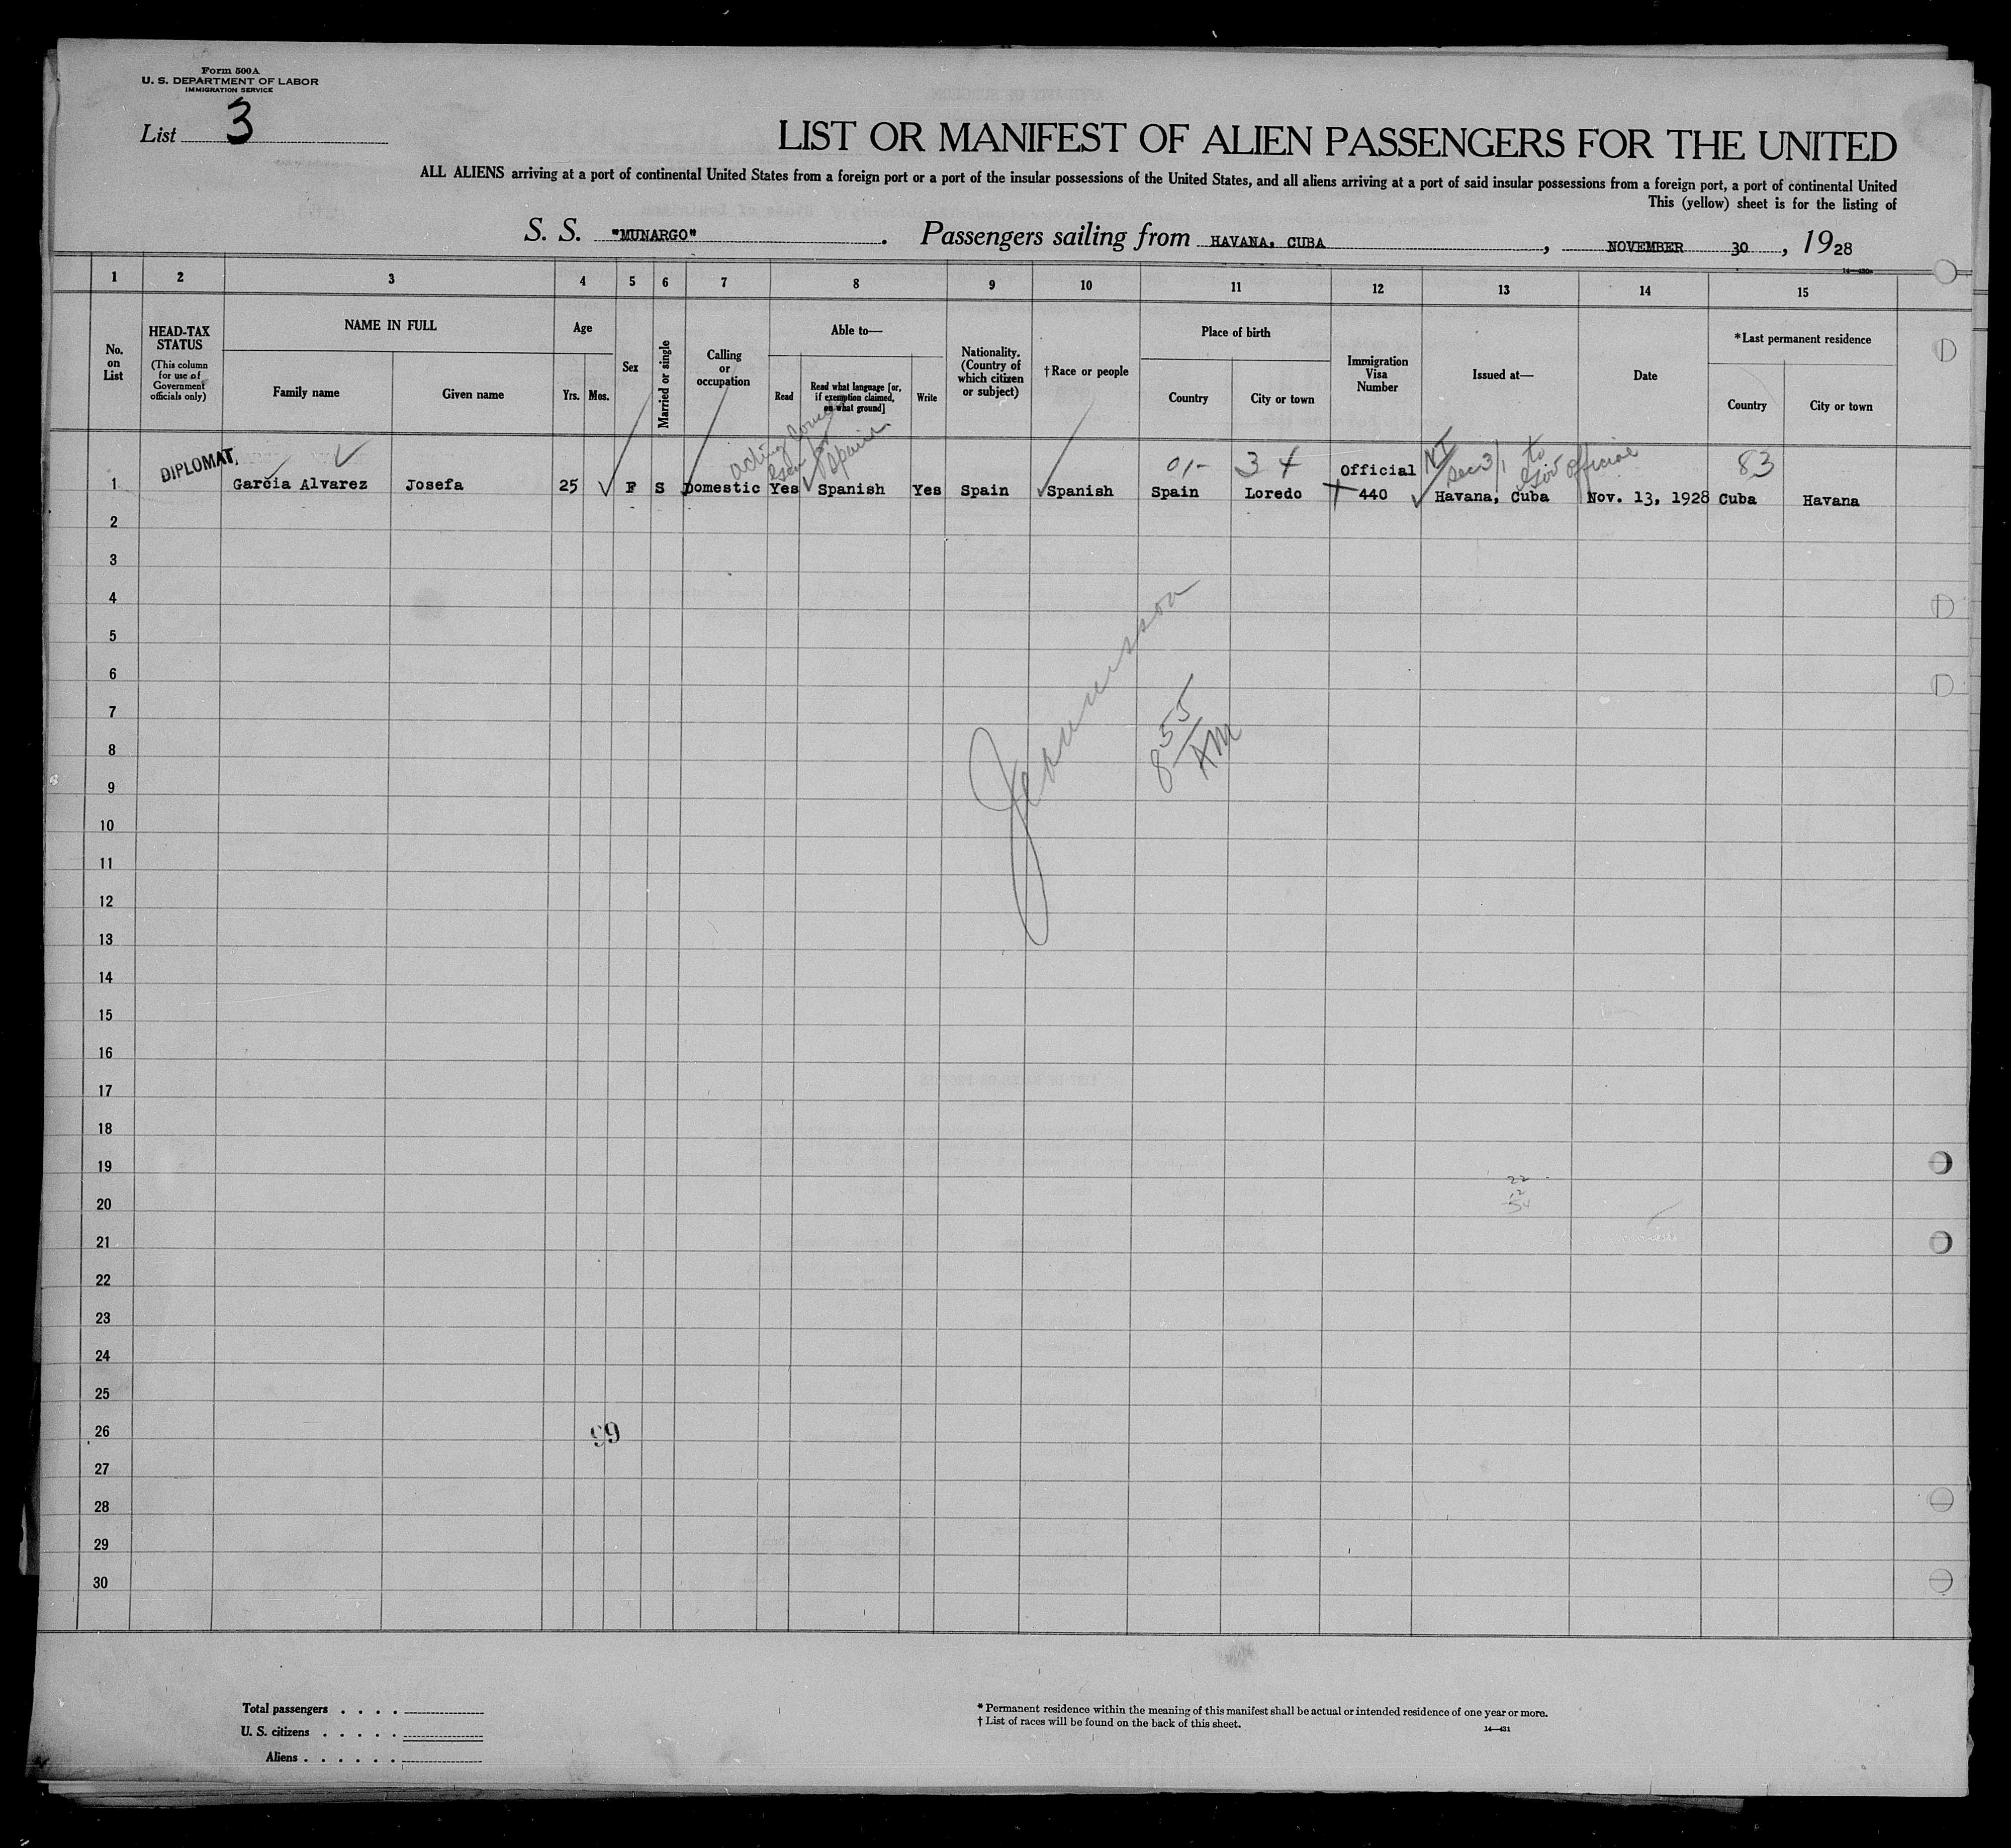 Form 500A
U. S. DEPARTMENT OF LABOR
IMMIGRATION SERVICE
List 3
LIST OR MANIFEST OF ALIEN PASSENGERS FOR THE UNITED
ALL ALIENS arriving at a port of continental United States from a foreign port or a port of the insular possessions of the United States, and all aliens arriving at a port of said insular possessions from a foreign port, a port of continental United
This (yellow) sheet is for the listing of
S. S. "MUNARGO". Passengers sailing from HAVANA, CUBA, NOVEMBER 30, 1928
1 2 3 4 5 6 7 8 9 10 11 12 13 14 15
No. on List
HEAD-TAX STATUS
(This column for use of Government officials only)
NAME IN FULL
Family name
Given name
Age
Yrs.
Mos.
Sex
Married or single
Calling or occupation
Able to—
Read
Read what language [or, if exemption claimed, on what ground]
Write
Nationality. (Country of which citizen or subject)
† Race or people
Place of birth
Country
City or town
Immigration Visa Number
Issued at—
Date
* Last permanent residence
Country
City or town
acting
for
Spain
01- 34
NI
Sec 3/1 to
Gov official
83
1 DIPLOMAT. Garcia Alvarez Josefa 25 F S Domestic Yes Spanish Yes Spain Spanish Spain Loredo Official 440 Havana, Cuba Nov. 13, 1928 Cuba Havana
2
3
4
5
6
7
8
9
10
11
12
13
14
15
16
17
18
19
20
21
22
23
24
25
26
27
28
29
30
8 55 AM
22
99
Total passengers . . . .
U. S. citizens . . . . .
Aliens . . . . . .
* Permanent residence within the meaning of this manifest shall be actual or intended residence of one year or more.
† List of races will be found on the back of this sheet.
14—431